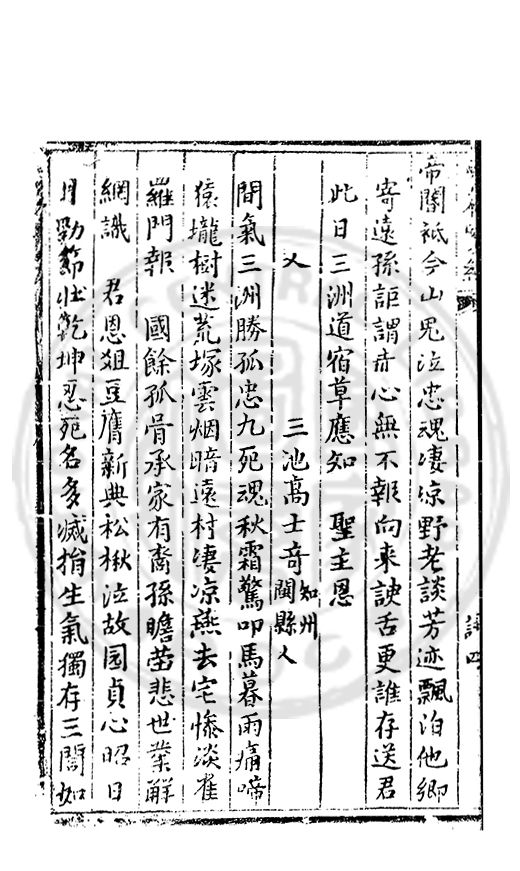 帝閽祗今山鬼泣忠魂凄凉野老談芳迹飄泊他鄉
寄遠孫詎謂赤心無不報向来諛舌更誰存送君
此日三洲道宿草應知 聖主恩
又 三池高士竒知州閩縣人
間氣三洲勝孤忠九死魂秋霜驚叩馬暮雨痛啼
猿壠樹迷荒塚雲烟暗遠村凄凉燕去宅慘淡雀
羅門報 國餘孤骨承家有裔孫瞻塋悲世業解
網識 君恩俎豆膺新典松楸泣故园貞心昭日
月勁節壮乾坤忍死名多滅捐生氣獨存三閭如